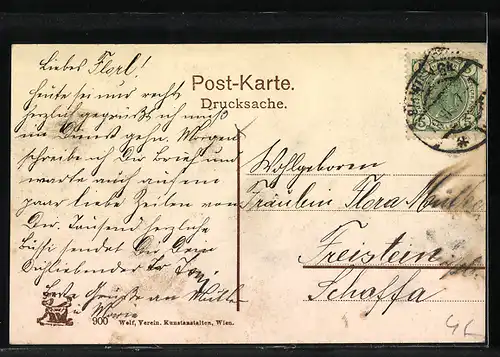 Liebes Florl!
Heute sei nur recht
herzlich gegrüsst ich muß
im Dienst gehn. Morgen
schreibe ich Dir Brief und
warte auch auf ein
paar liebe Zeilen von
Dir. Tausend herzliche
Bussi sendet Dir Dein
Dichliebender
Beste Grüße an Mülle
u Marie
Post-Karte.
Drucksache.
5 5
Wohlgeboren
Fräulein Flora Mülle
Freistein
Schaffa
900 Wolf, Verein. Kunstanstalten, Wien.